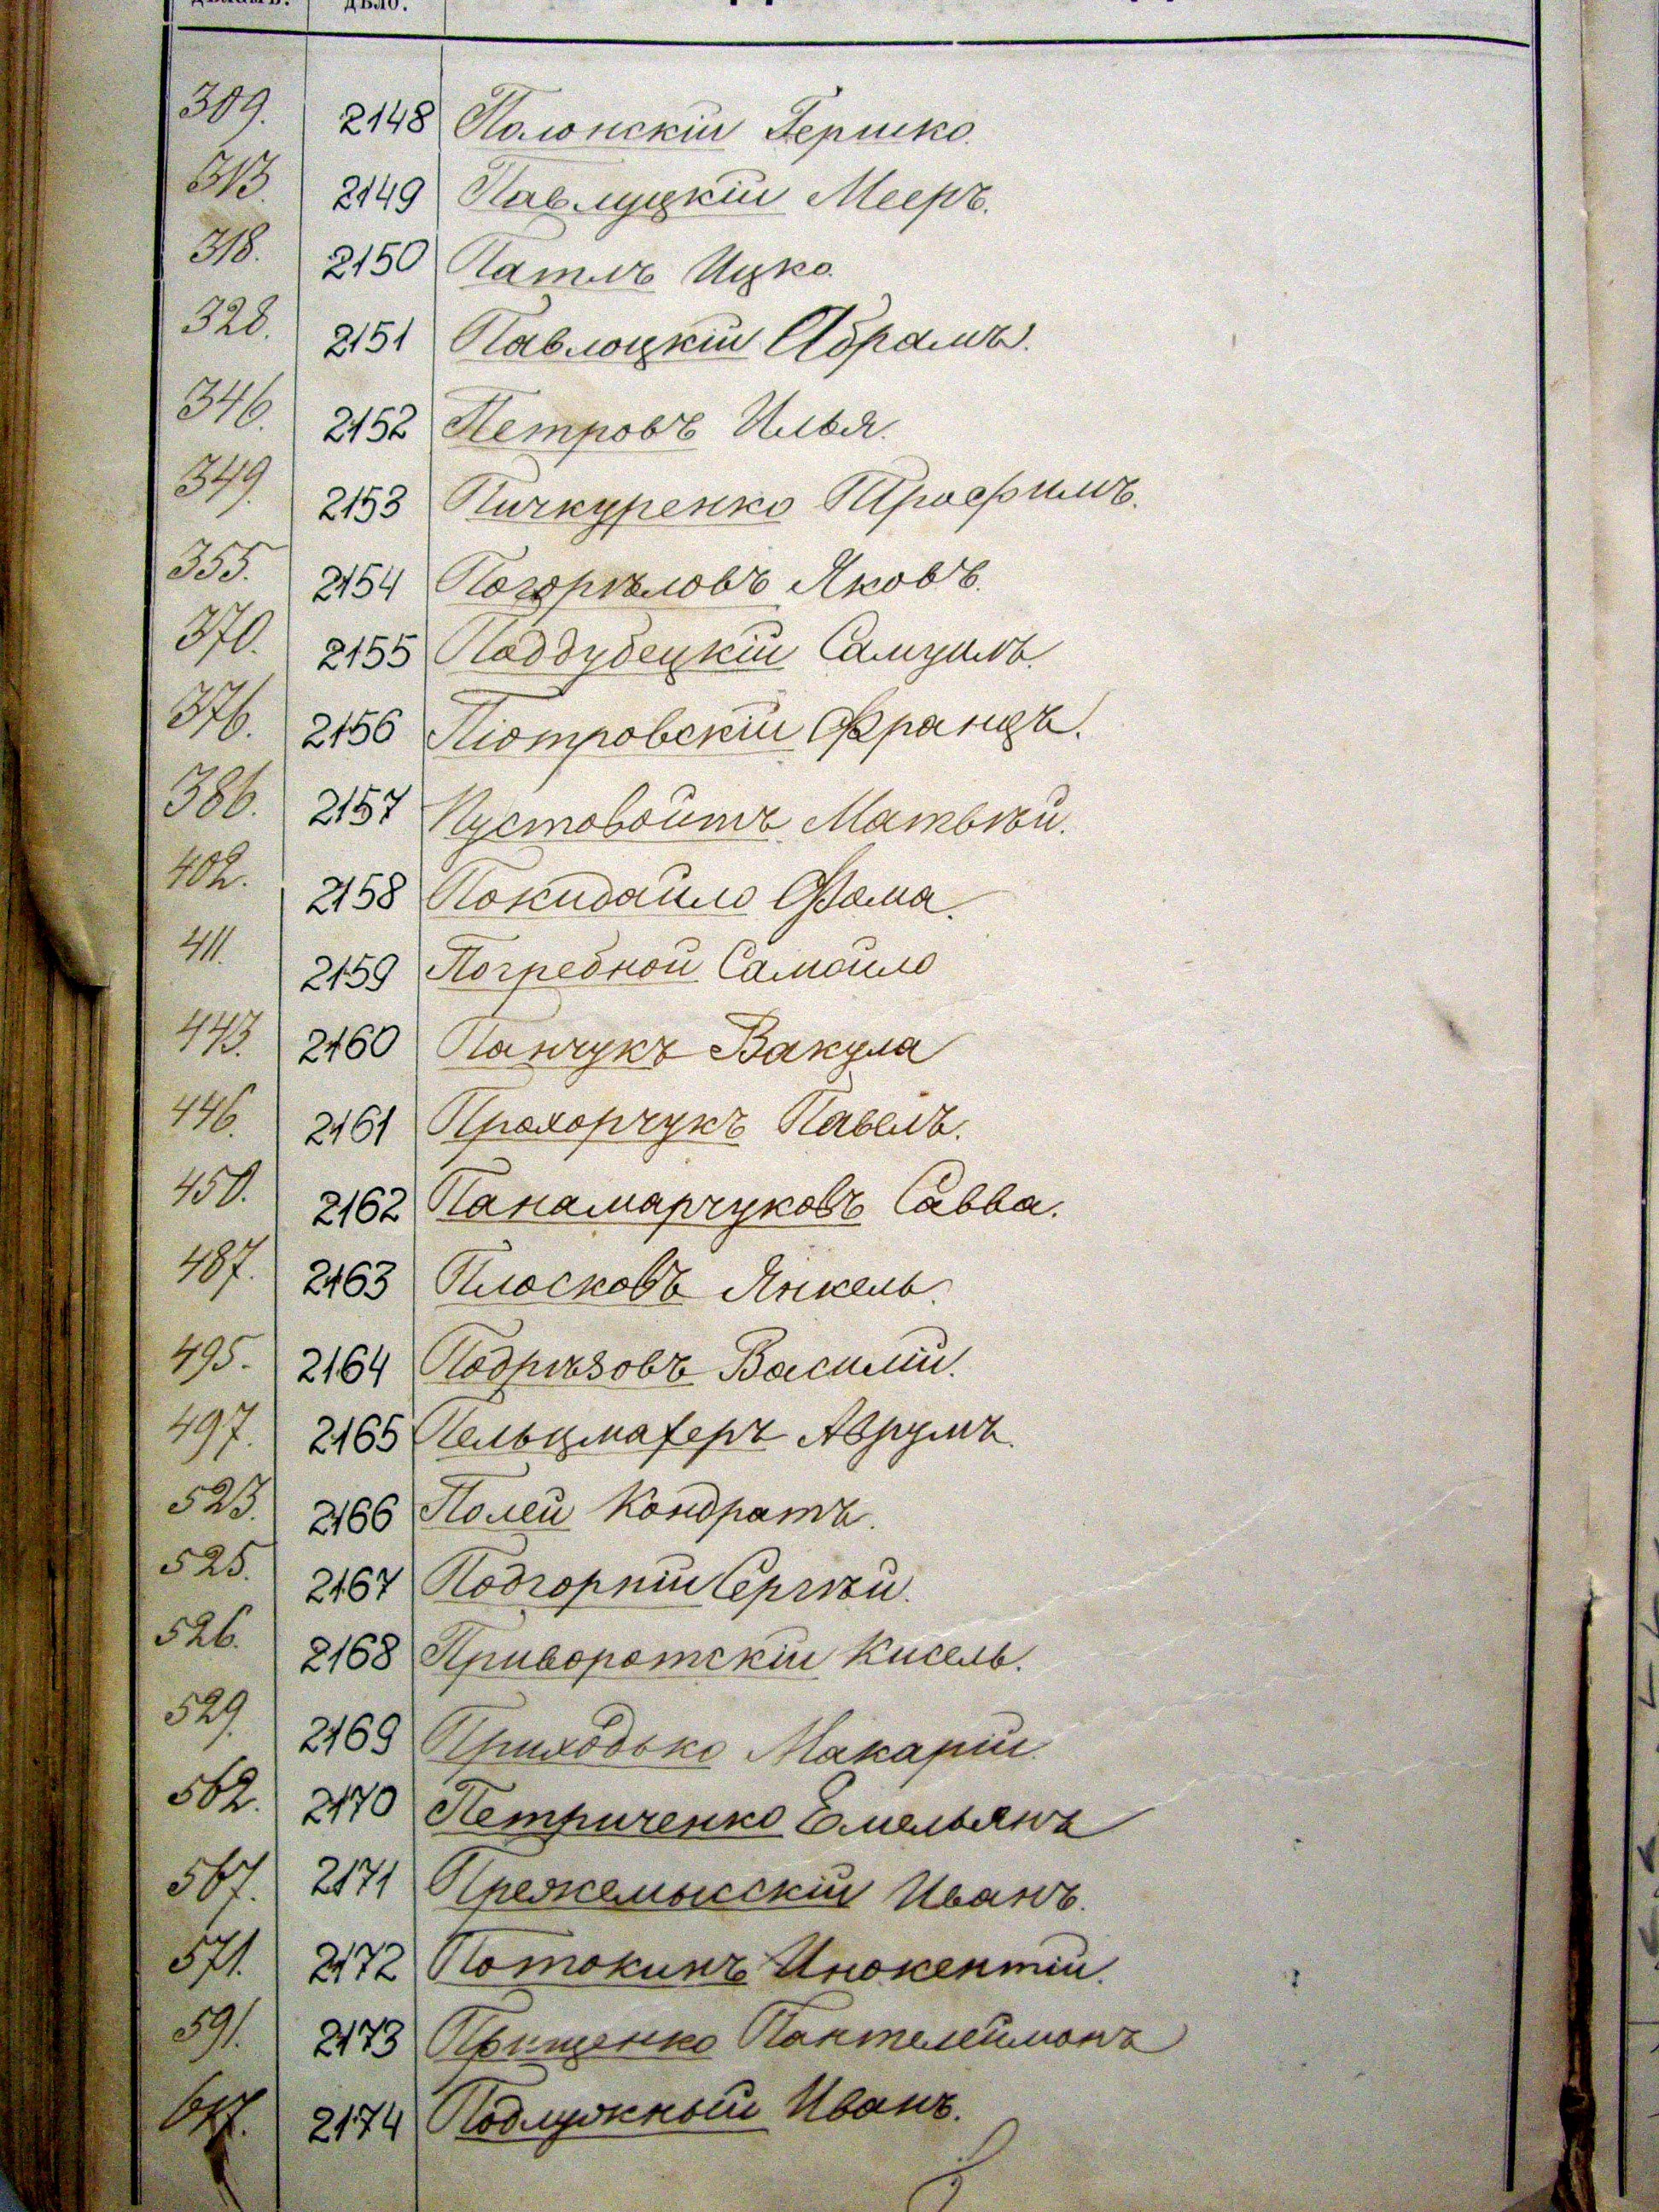 дѣло.
309. 2148 Полонскій Гершко.
313. 2149 Павлуцкій Мееръ.
318. 2150 Патлъ Ицко.
328. 2151 Павлоцкій Абрамъ.
346. 2152 Петровъ Илья.
349. 2153 Пичкуренко Трофимъ.
355. 2154 Погорѣловъ Яковъ.
370. 2155 Поддубецкій Самуилъ.
376. 2156 Піотровскій Францъ.
386. 2157 Пустовойтъ Матвѣй.
402. 2158 Покидайло Фома.
411. 2159 Погребной Самойло
443. 2160 Панчукъ Вакула
446. 2161 Прохорчукъ Павелъ.
450. 2162 Панамарчуковъ Савва.
487. 2163 Плосковъ Янкель.
495. 2164 Подрѣзовъ Василій.
497. 2165 Пельцмахеръ Аврумъ.
523. 2166 Полей Кондратъ.
525. 2167 Подгорній Сергѣй.
526. 2168 Приворотскій Кисель.
529. 2169 Приходько Макарій.
562. 2170 Петриченко Емельянъ
567. 2171 Прежемысскій Иванъ.
571. 2172 Потокинъ Инокентій.
591. 2173 Прищенко Пантелеймонъ
2174 Подлужный Иванъ.